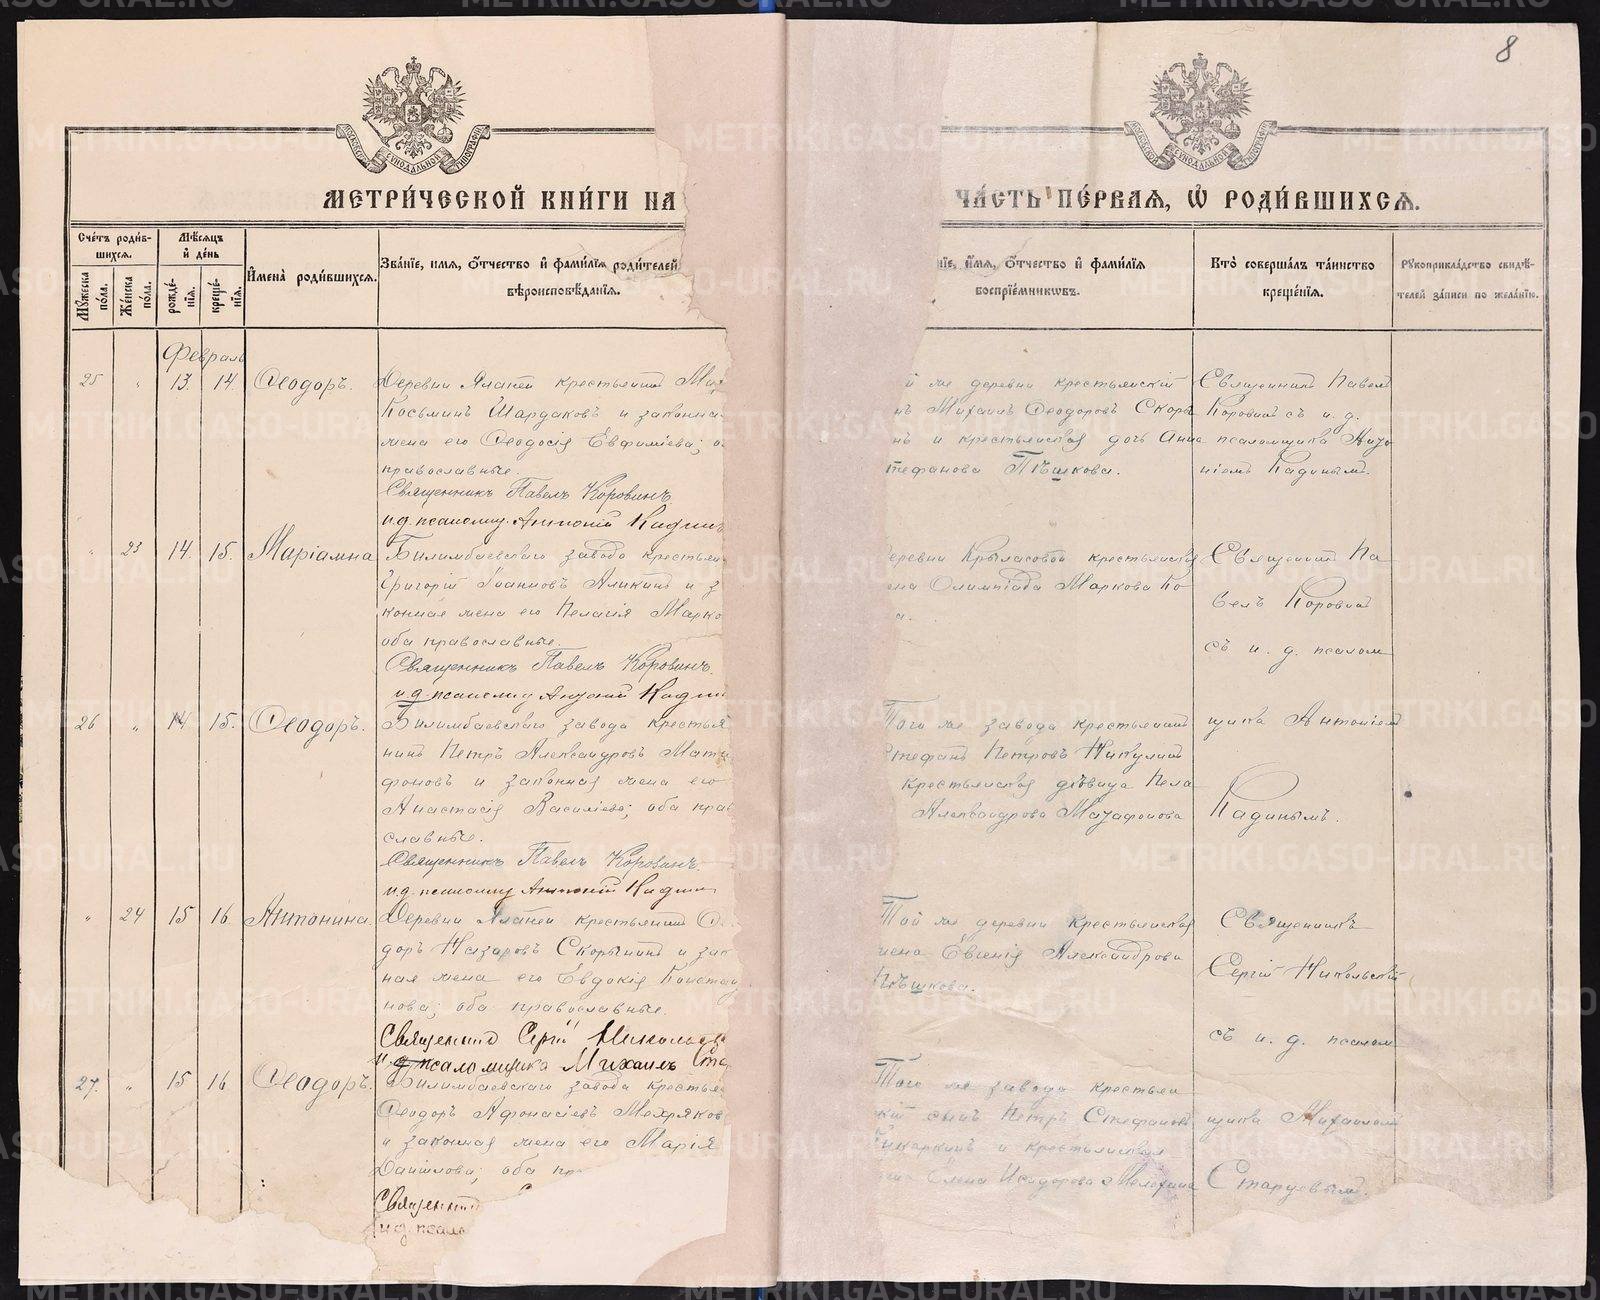 8
МОСКОВСКОЙ СѴНОДАЛЬНОЙ ТИПОГРАФІИ
МОСКОВСКОЙ СѴНОДАЛЬНОЙ ТИПОГРАФІИ
МЕТРИ́ЧЕСКОЙ КНИ́ГИ НА
ЧА́СТЬ ПЕ́РВАѦ, Ѿ РОДИ́ВШИХСѦ.
Сче́тъ роди́в-
шихсѧ.
Мѣ́сѧцъ
и҆ де́нь
Мꙋ́жеска по́ла.
Же́нска по́ла.
рожде́-нїѧ.
креще́-нїѧ.
И҆мена̀ роди́вшихсѧ.
Зва́нїе, и҆́мѧ, ѻ҆́тчество и҆ фами́лїѧ роди́телей
вѣроисповѣ́данїѧ.
нїе, и҆́мѧ, ѻ҆́тчество и҆ фами́лїѧ
воспрїе́мникѡвъ.
Кто̀ соверша́лъ та́инство
креще́нїѧ.
Рꙋкоприкла́дство свидѣ́-
телей за́писи по жела́нїю.
Февраль
25 " 13. 14 Ѳеодоръ.
Деревни крестьянинъ
Косьминъ Шардаковъ и законна
жена его Ѳеодосія Евфиміева;
православные.
Священникъ Павелъ Коровинъ
и.д. псаломщ. Антоній Кадин
й же деревни крестьянскій
нъ Михаилъ Ѳеодоровъ Скоры
нъ и крестьянская дочь Анна
тефанова Пѣшкова.
Священникъ Павелъ
Коровинъ съ и. д.
псаломщика Анто
ніемъ Кадинымъ.
" 23 14. 15. Маріамна
Билимбаевскаго завода крестьян
Григорій Іоанновъ Аликинъ и з
конная жена его Пелагія Марко
оба православные.
Священникъ Павелъ Коровинъ.
и.д. псаломщ Антоній Кадин
еревни Крыласовой крестьянская
ена Олимпіада Маркова Ко
а.
Священникъ Па
велъ Коровинъ
съ и. д. псалом
щика Антоніемъ
Кадинымъ.
26 " 14 15. Ѳеодоръ.
Билимбаевскаго завода крестья
нинъ Петръ Александровъ Мата
фоновъ и законная жена его
Анастасія Василіева; оба прав
славные.
Священникъ Павелъ Коровинъ.
и.д. псаломщ Антоній Кадин
Того же завода крестьянинъ
Стефанъ Петровъ Никулинъ
крестьянская дѣвица Пела
Александрова Матафонова
" 24 15 16 Антонина.
Деревни крестьянинъ Ѳ
доръ Назаровъ Скорынинъ и зак
ная жена его Евдокія Констан
нова; оба православные.
Священникъ Сергій Никольск
и.д. псаломщика Михаилъ Ста
Той же деревни крестьянская
жена Евгенія Александрова
Пѣшкова.
Священникъ
Сергій Никольскій
съ и. д. псалом
щика Михаиломъ
Старцевымъ.
27. " 15 16 Ѳеодоръ.
Билимбаевскаго завода крестья
Ѳеодоръ Афонасіевъ Мехряков
и законная жена его Марія
Даніилова; оба пр
Священникъ
и д. псало
Того же завода крестьян
скій сынъ Петръ Стефановъ
и крестьянская
Елена Исидорова